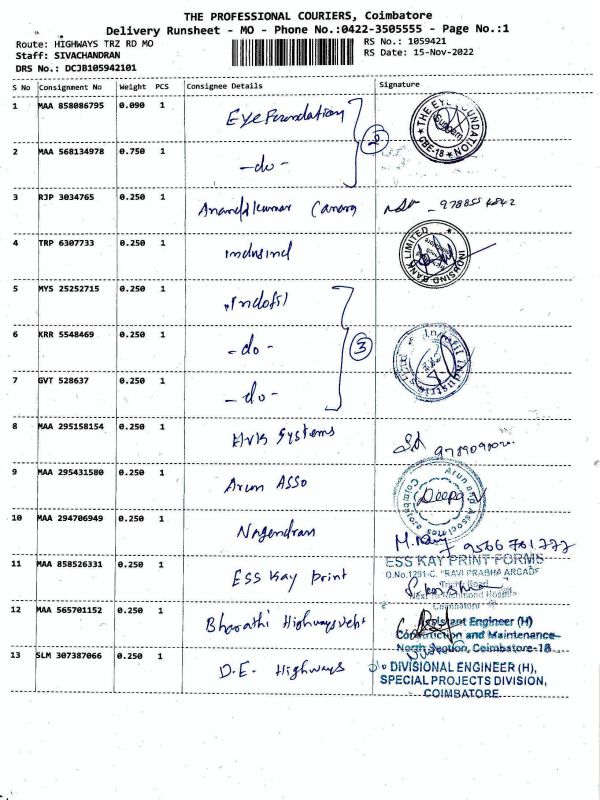 THE PROFESSIONAL COURIERS, Coimbatore
Delivery Runsheet - MO - Phone No.:0422-3505555 - Page No.:1
Route: HIGHWAYS TRZ RD MO
RS No.: 1059421
Staff: SIVACHANDRAN
RS Date: 15-Nov-2022
DRS No.: DCJB105942101
S No Consignment No Weight PCS Consignee Details Signature
1 MAA 858086795 0.090 1 Eye Foundation THE EYE FOUNDATION CBE-18
2 MAA 568134978 0.750 1 -do- 2
3 RJP 3034765 0.250 1 Anandkumar Canara
4 TRP 6307733 0.250 1 indusind INDUSIND BANK LIMITED
5 MYS 25252715 0.250 1 Indofil
6 KRR 5548469 0.250 1 -do- 3 Indofil Industries
7 GVT 528637 0.250 1 -do-
8 MAA 295158154 0.250 1 Systems
9 MAA 295431580 0.250 1 Arun Asso Arun and Associates Coimbatore Deepa
10 MAA 294706949 0.250 1 Nagendran M.
11 MAA 858526331 0.250 1 ESS Kay print ESS KAY PRINT FORMS
D.No.1291-C, "RAVI PRABHA ARCADE"
Trichy Road
Next to Richmond Hospital
Coimbatore
12 MAA 565701152 0.250 1 Bharathi Highways Dept Assistant Engineer (H)
Construction and Maintenance
North Section, Coimbatore-18
13 SLM 307387066 0.250 1 D.E. Highways DIVISIONAL ENGINEER (H),
SPECIAL PROJECTS DIVISION,
COIMBATORE